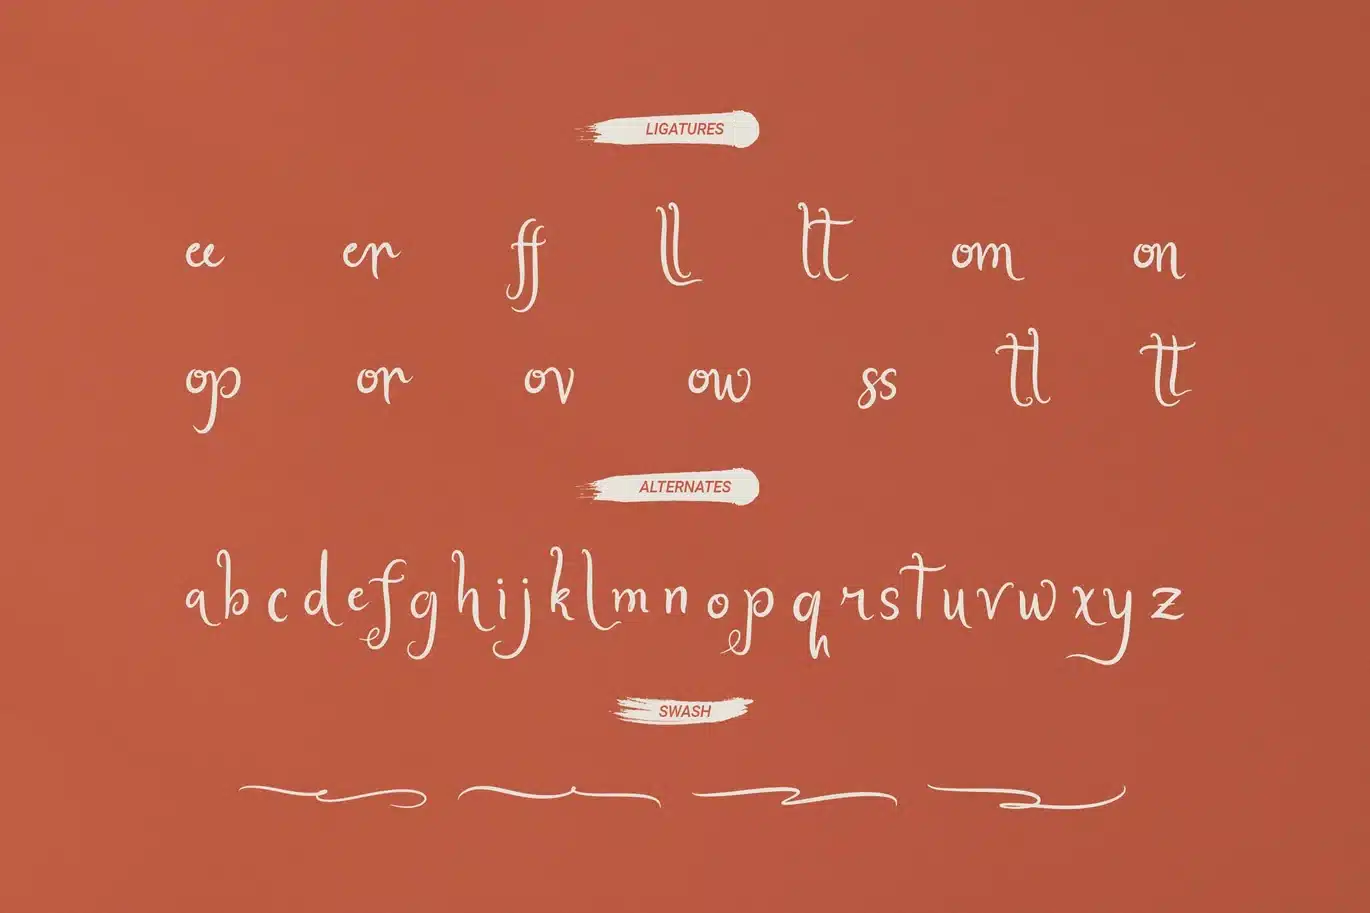 LIGATURES
ee er ff ll lt om on
op or ov ow ss tl tt
ALTERNATES
a b c d e f g h i j k l m n o p q r s t u v w x y z
SWASH